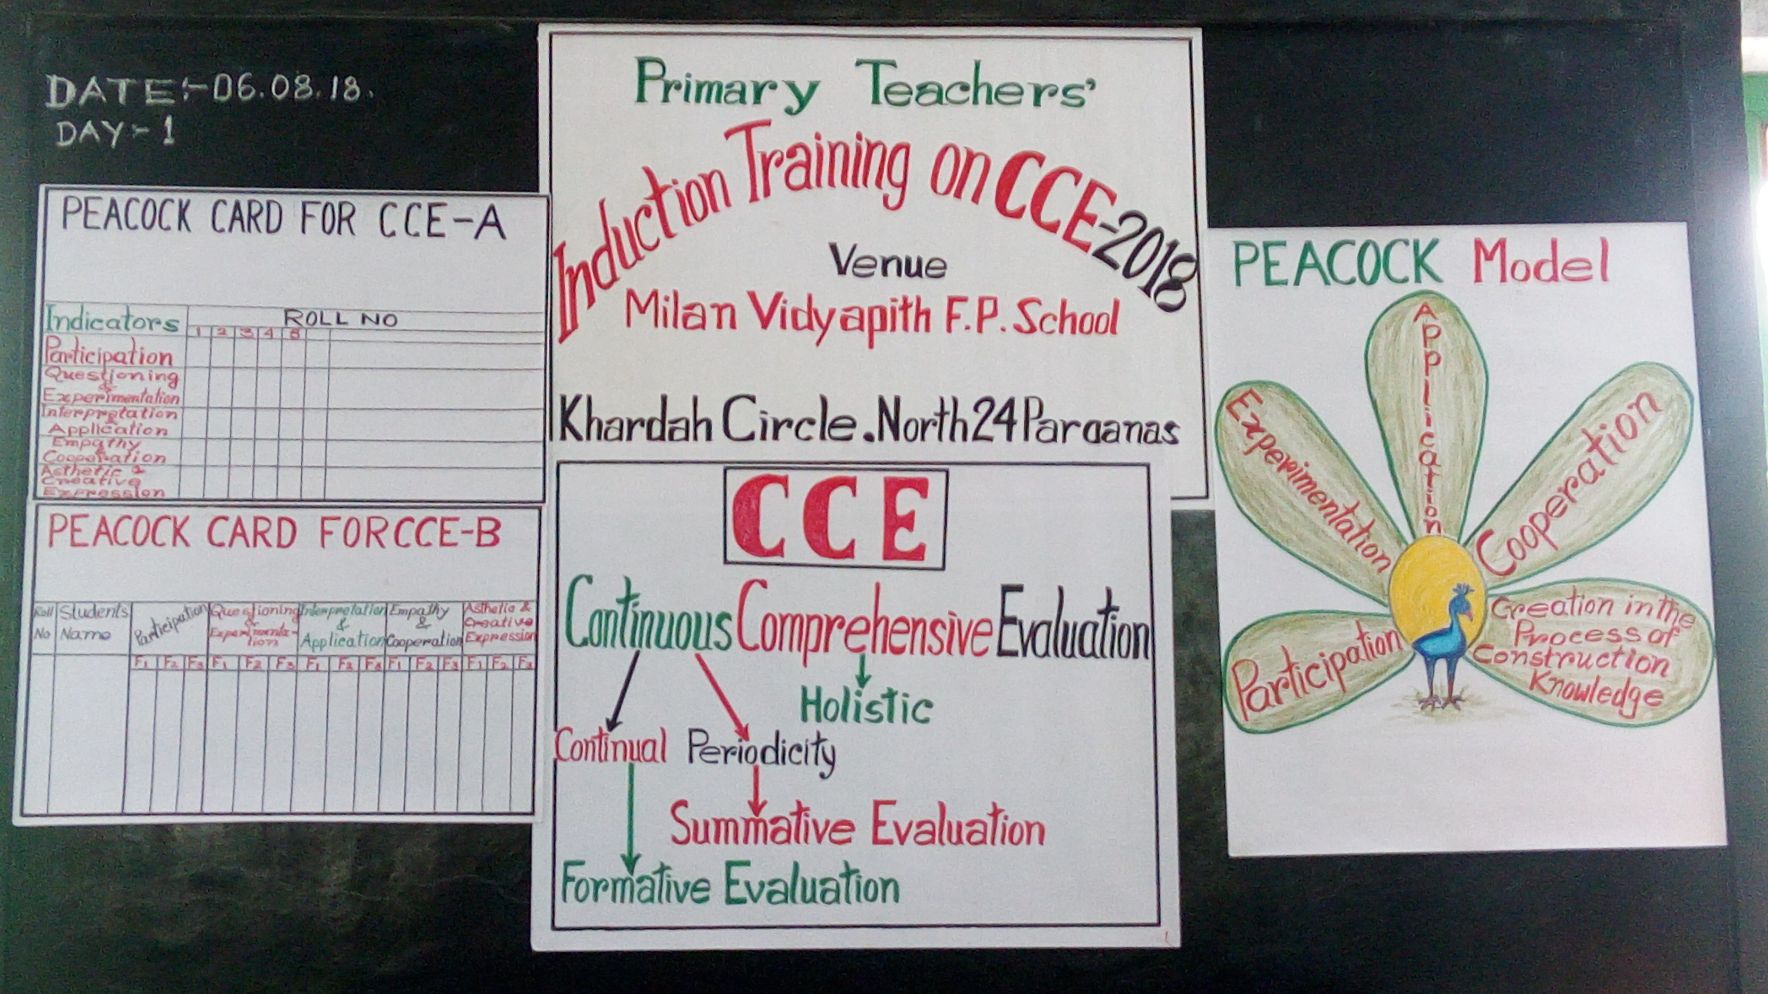 DATE:-06.08.18.
DAY:-1
Primary Teachers'
Induction Training on CCE-2018
Venue
Milan Vidyapith F.P. School
Khardah Circle.North 24 Parganas
PEACOCK CARD FOR CCE-A
Indicators ROLL NO
1 2 3 4 5
Participation
Questioning
&
Experimentation
Interpretation
&
Application
Empathy
&
Cooperation
Asthetic &
Creative
Expression
PEACOCK CARD FOR CCE-B
Roll No
Students Name
Participation
Questioning & Experimentation
Interpretation & Application
Empathy & Cooperation
Asthetic & Creative Expression
F1 F2 F3 F1 F2 F3 F1 F2 F3 F1 F2 F3 F1 F2 F3
CCE
Continuous Comprehensive Evaluation
Holistic
Continual Periodicity
Summative Evaluation
Formative Evaluation
PEACOCK Model
Participation
Experimentation
Application
Cooperation
Creation in the
Process of
Construction
Knowledge